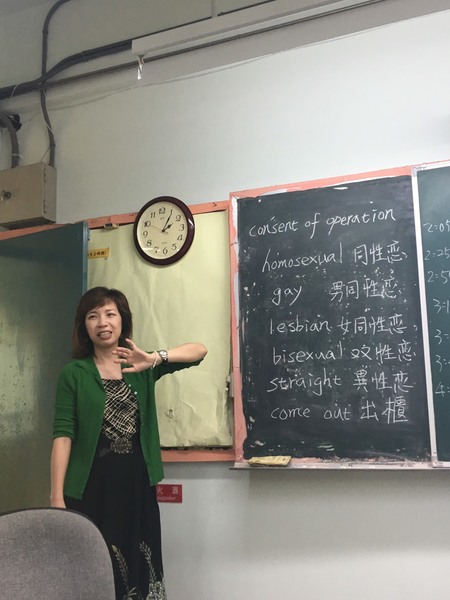 consent of operation
homosexual 同性恋
gay 男同性恋
lesbian 女同性恋
bisexual 双性恋
straight 異性恋
come out 出櫃
2=50
3=
3=
4=